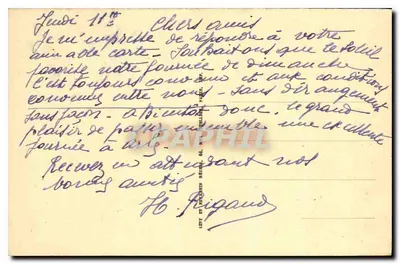 Jeudi 11h
Chers amis
Je m'empresse de répondre à votre
aimable carte - Souhaitons que le soleil
favorise notre journée de dimanche
C'est toujours convenu et aux conditions
convenues entre nous - Sans dérangement
sans façon - a Bientôt donc. le grand
plaisir de passer ensemble une excellente
journée à
Recevez en attendant nos
bonnes amitiés
H. Rigaud